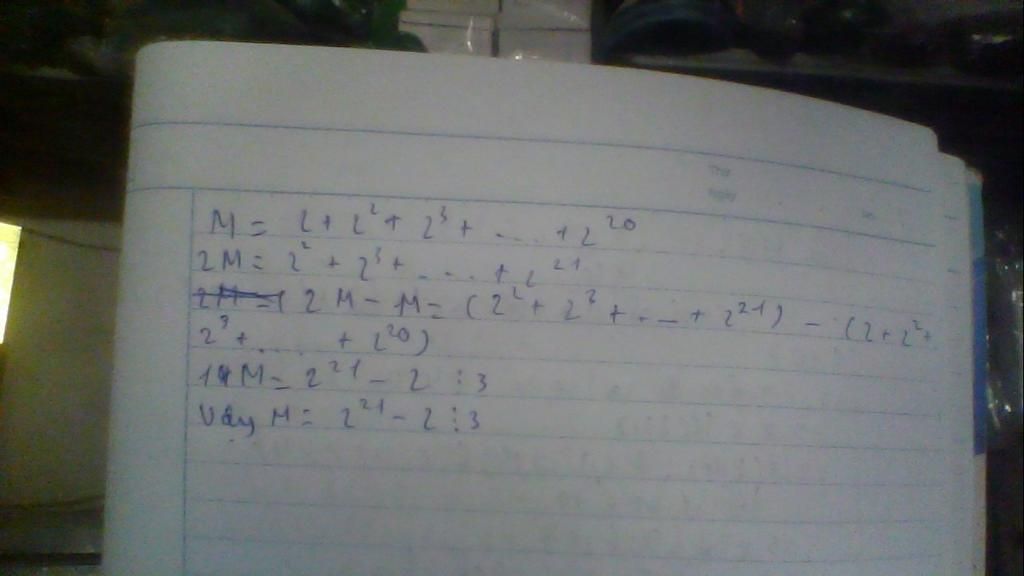 M = 2 + 2² + 2³ + .... + 2²⁰
2M = 2² + 2³ + ..... + 2²¹
2M = ( 2M - M = (2² + 2³ + ... + 2²¹) - (2 + 2² +
2³ + ..... + 2²⁰)
M = 2²¹ - 2 ⋮ 3
Vậy M = 2²¹ - 2 ⋮ 3